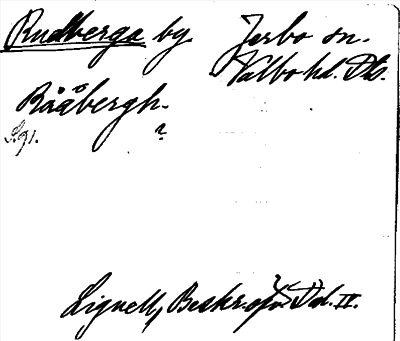 Rudberga by Jerbo sn.
Valbo hd. Dls.
Rååbergh.
?
Lignell, Beskr. öfv. Dal. II.